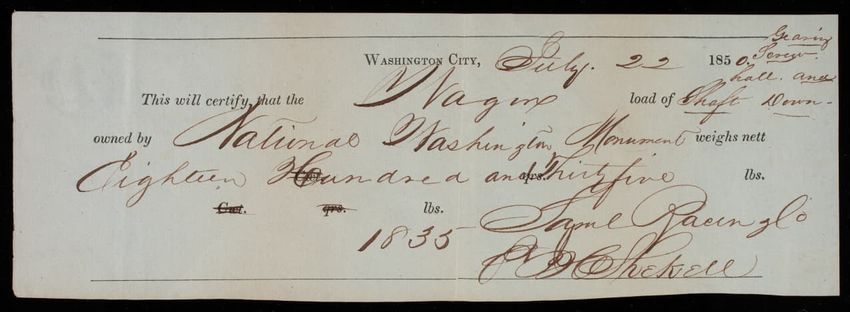 Gearing
WASHINGTON CITY, July. 22 1850, Screw.
Ball. and
This will certify, that the Wagon load of Shaft Down-
owned by National Washington Monument weighs nett
Eighteen Hundred and Thirty five lbs.
Cwt. qrs. lbs.
1835
Shekell